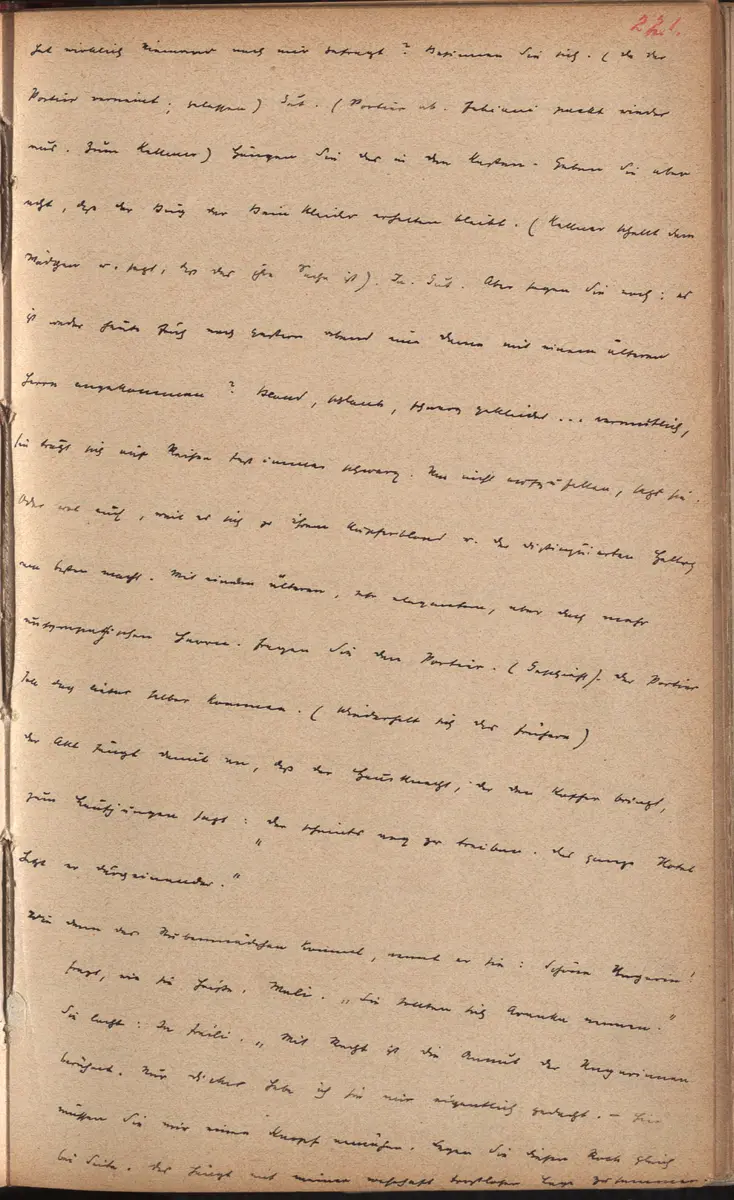 221.
Hat wirklich Niemand nach mir gefragt? Besinnen Sie sich. (da der
Portier verneint; gelassen) Gut. (Portier ab. Fabiani packt wieder
aus. Zum Kellner) Hängen Sie das in den Kasten. Geben Sie aber
acht, daß der Bug der Beinkleider erhalten bleibt. (Kellner schellt dem
Mädchen u. sagt, daß das ihre Sache ist). Ja. Gut. Aber sagen Sie noch: es
ist weder heute früh noch gestern abend eine Dame mit einem älteren
Herrn angekommen? Blond, schlank, schwarz gekleidet... vermutlich,
sie trägt sich auf Reisen fast immer schwarz. Um nicht aufzufallen, sagt sie.
Oder wol auch, weil es sich zu ihrem Kupferblond u. der distinguierten Haltung
am besten macht. Mit einem älteren, sehr eleganten, aber doch mehr
unsympathischen Herren. Fragen Sie den Portier. (Geschieht). Der Portier
soll doch lieber selber kommen. (Wiederholt sich das frühere)
Der Akt fängt damit an, daß der Hausknecht, der den Koffer bringt,
zum Laufjungen sagt: „Der scheints arg zu treiben. Das ganze Hotel
hetzt er durcheinander."
Wie dann das Stubenmädchen kommt, nennt er sie: Schöne Ungarin!
fragt, wie sie heiße. Mali. „Sie sollten sich Aranka nennen."
Sie lacht: „Mit Recht ist die Anmut der Ungarinnen
berühmt. Nur dicker habe ich sie mir eigentlich gedacht. – Hier
müssen Sie mir einen Knopf annähen. Legen Sie diesen Rock gleich
bei Seite. Das hängt mit meiner wahrhaft trostlosen Lage zusammen.